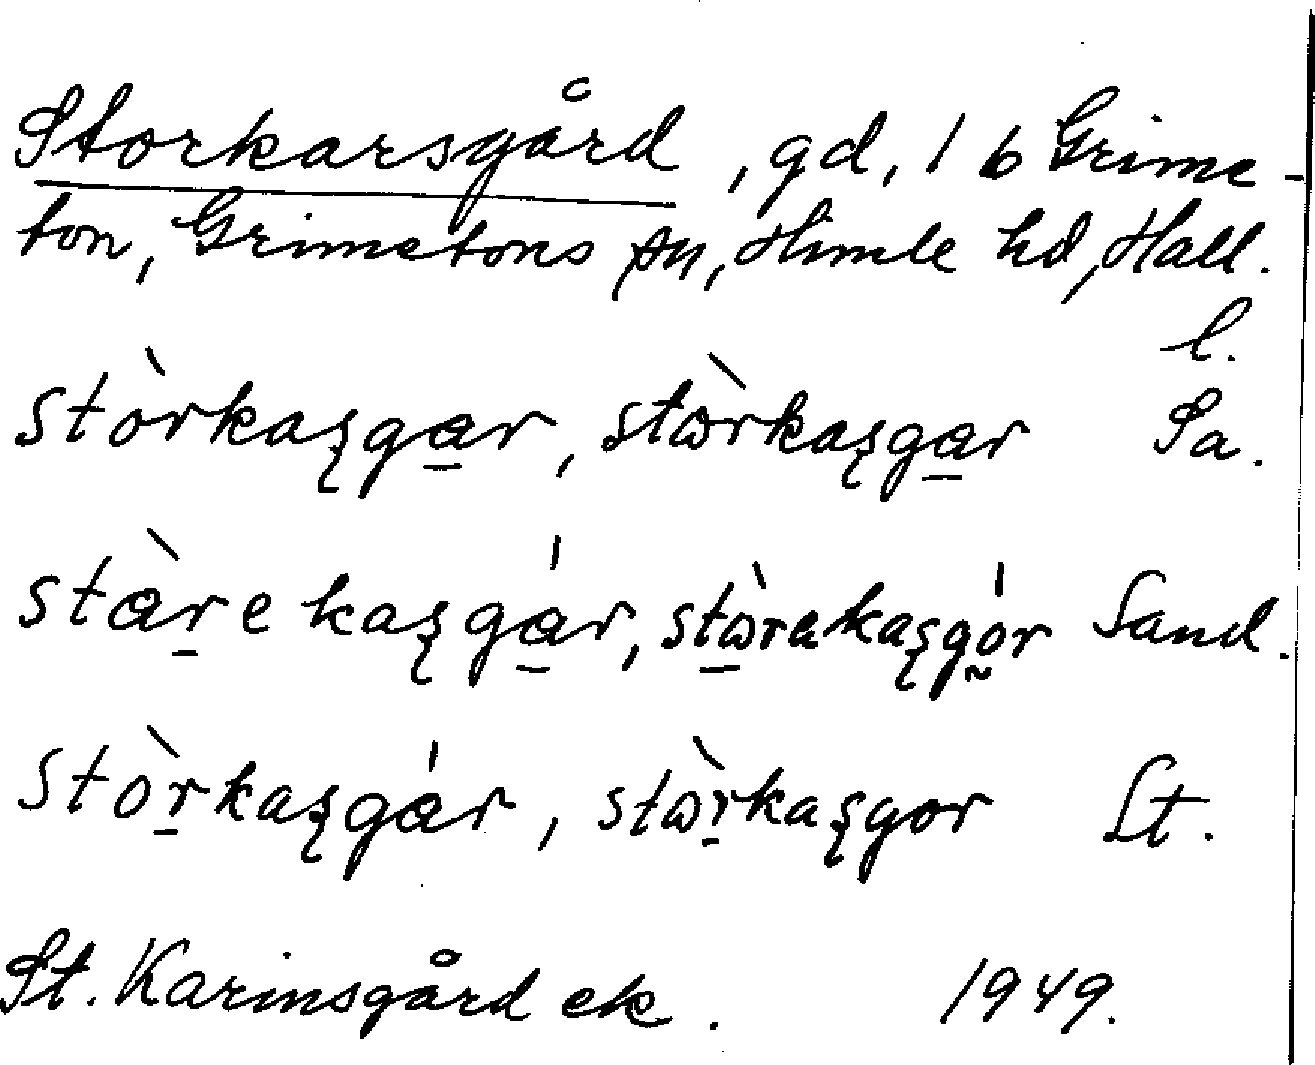 Storkarsgård, gd, 1 b Grime-
ton, Grimetons sn, Himle hd, Hall.
l.
stòrkaʂga̠r, stωrkaʂga̠r Sa.
stær̠ekaʂga̠r, stω̠rekaʂgo̰r Sand.
stòr̠kaʂgár, stωr̠kaʂgor St.
St. Karinsgård ek. 1949.